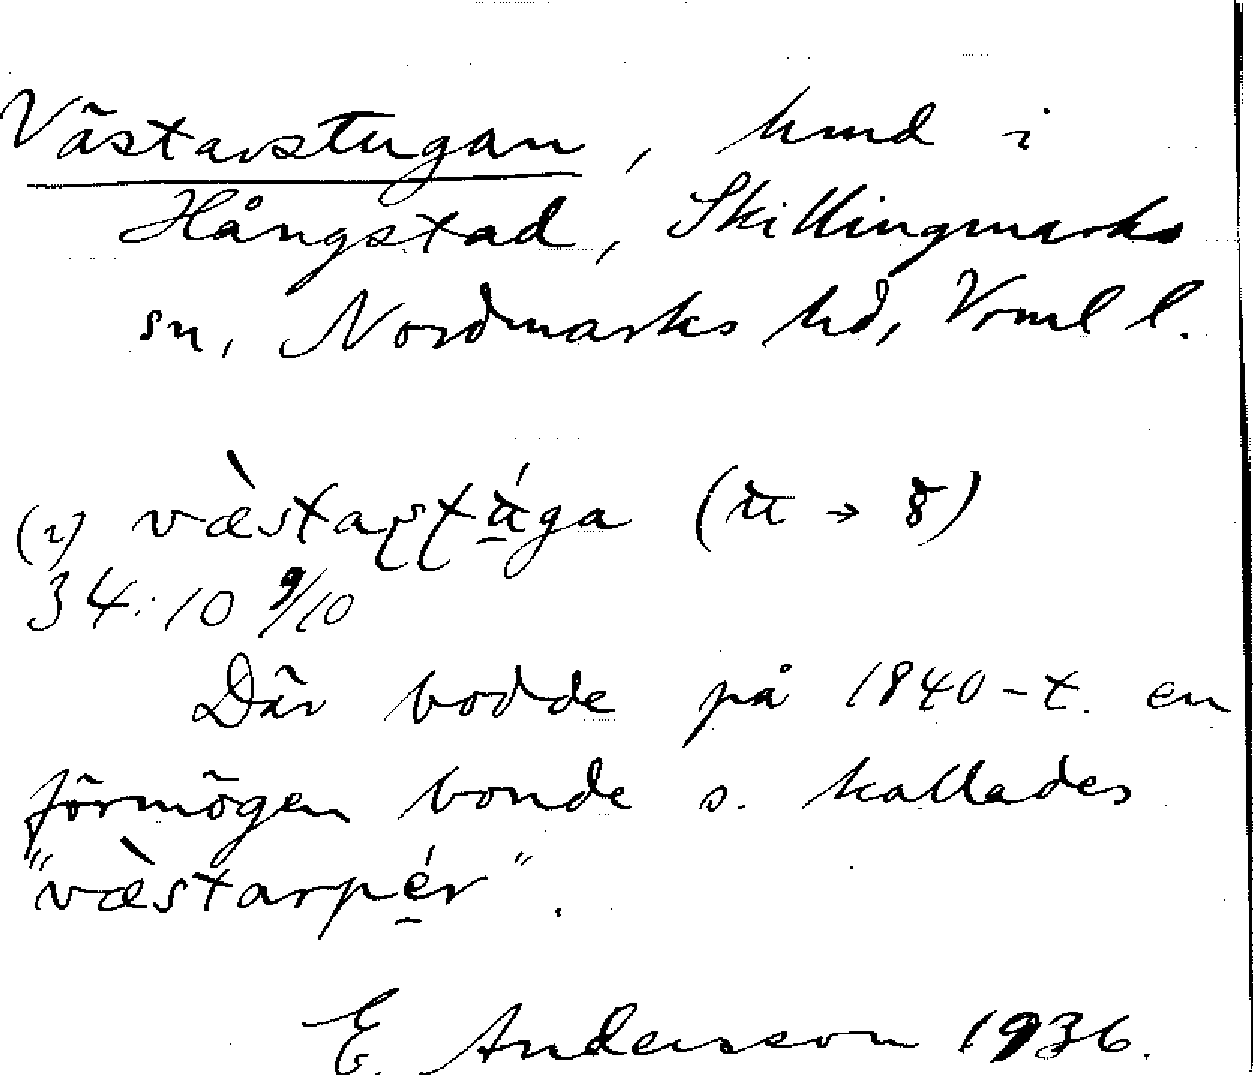 Västarstugan, hmd i
Hångstad, Skillingmarks
sn, Nordmarks hd, Vrml l.
(i) væ̀staʂʈú̱ga (u → 8)
34:10 9/10
Där bodde på 1840-t. en
förmögen bonde s. kallades
"væ̀starpé̱r".
E. Andersson 1936.